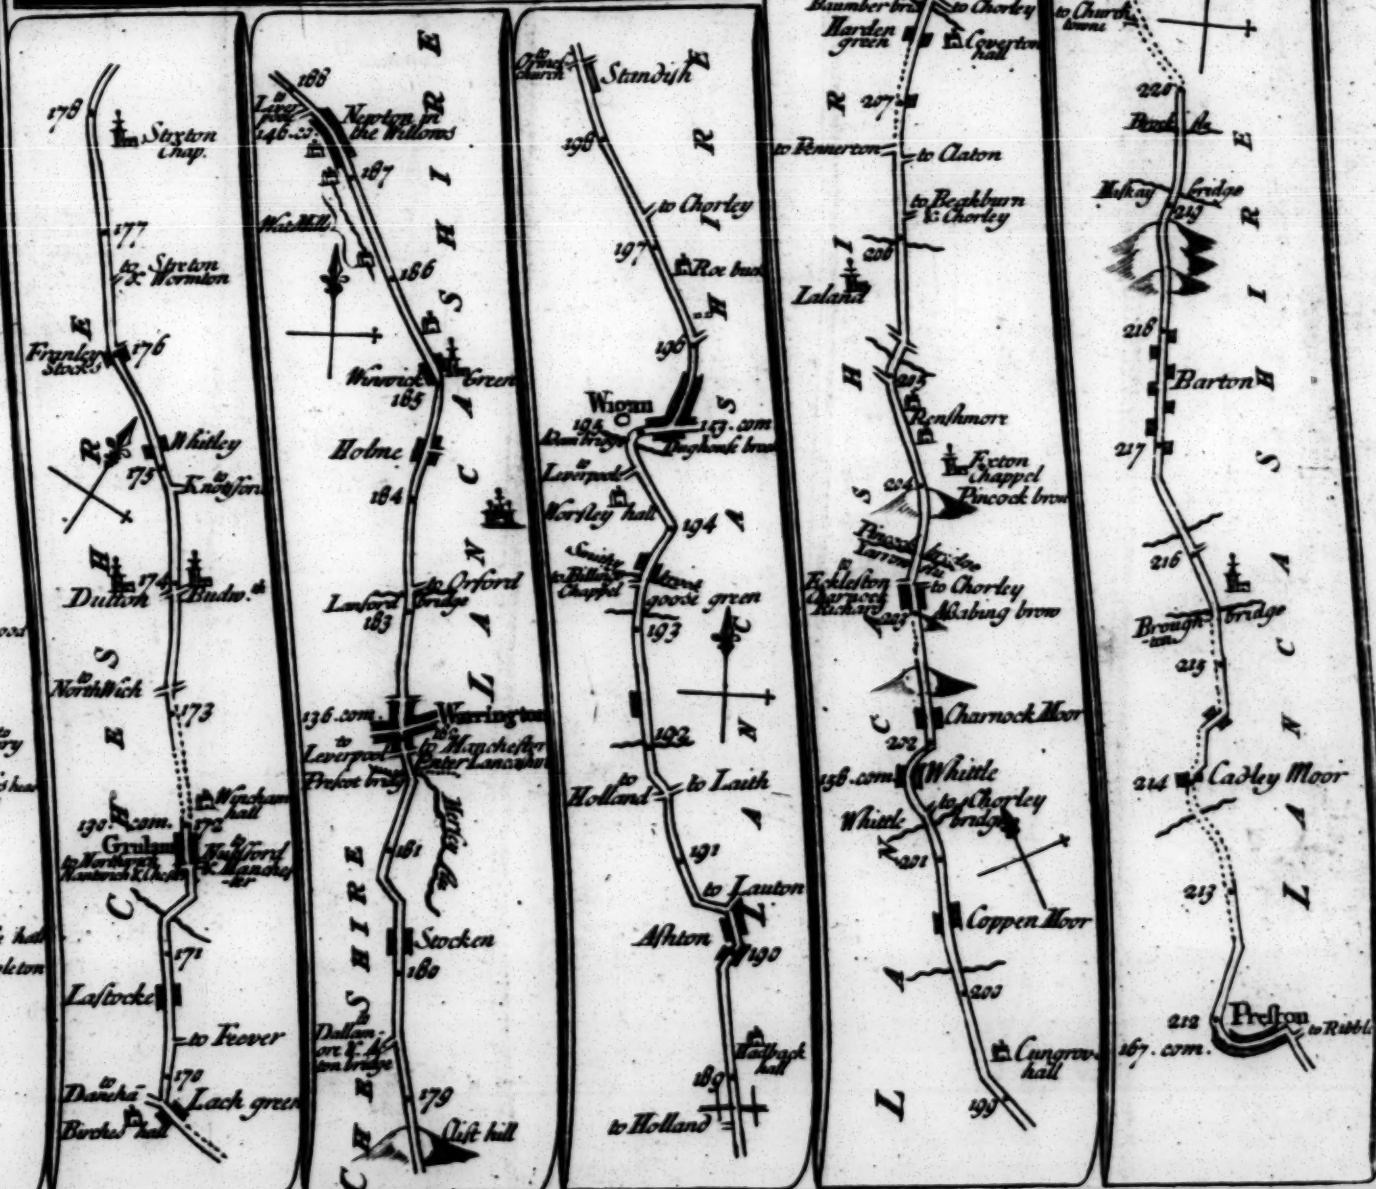 178
Stxton
Chap.
177
to Streton
& Wormton
Franley
Stocks
176
Whitley
175
to
Knotsford
174
Dutton
Budw.th
to
NorthWich
173
Wincham
hall
130. com.
172
Grulam
to Northwich
Nantwich & Chester
to
Knutsford
& Manches
-ter
171
Lastocke
to Feever
170
to
Daneha
Lach green
Birches hall
CHESHIRE
188
to
Liver
pool
146. co.
Newton in
the Willows
187
Wat Mill
186
Winwick
Green
185
Holme
184
to Orford
Lanford
bridge
183
136. com.
Warrington
182
to
Leverpool
to Manchester
Enter Lancashire
Prescot bridg
181
Stocken
180
to
Dallam-
ton bridge
179
Clift hill
CHESHIRE
LANCASHIRE
to
Orms
church
Standish
198
to Chorley
197
Roe buck
196
Wigan
195
153. com
Adam bridge
Doghouse brow
to
Leverpool
Worsley hall
194
to Billing
Chappel
goose green
193
192
to
Holland
to Laith
191
to Lauton
Ashton
190
Hadback
hall
189
to Holland
LANCASHIRE
to Chorley
Harden
green
Coverton
hall
207
to Pennerton
to Claton
to Beakburn
& Chorley
206
Laland
205
Renshmore
Exton
Chappel
204
Pincock brow
Pincock bridge
Yarrow flu
to
Eckleston
Charnock
Richard
to Chorley
203
Charnock Moor
202
158. com
Whittle
to Chorley
Whittle
bridge
201
Coppen Moor
200
Cungrove
hall
199
LANCASHIRE
to Church
towne
220
Maskay
bridge
219
218
Barton
217
216
Brough
-ton
bridge
215
214
Cadley Moor
213
212
Preston
to Ribble
167. com.
LANCASHIRE